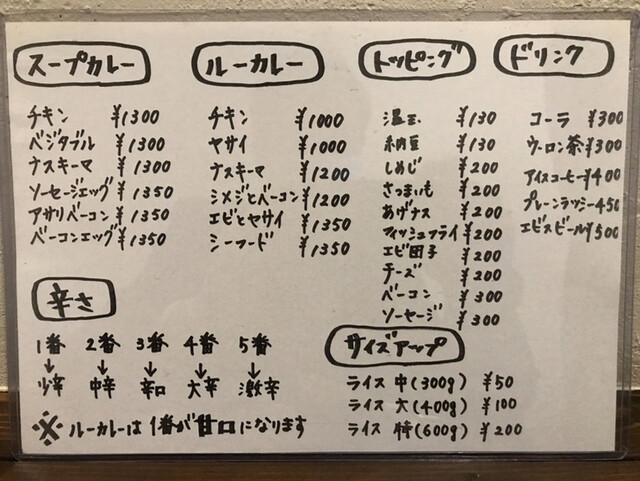 スープカレー
チキン ¥1300
ベジタブル ¥1300
ナスキーマ ¥1300
ソーセージエッグ ¥1350
アサリベーコン ¥1350
ベーコンエッグ ¥1350
ルーカレー
チキン ¥1000
ヤサイ ¥1000
ナスキーマ ¥1200
シメジとベーコン ¥1200
エビとヤサイ ¥1350
シーフード ¥1350
トッピング
温玉 ¥130
納豆 ¥130
しめじ ¥200
さつまいも ¥200
あげナス ¥200
フィッシュフライ ¥200
エビ団子 ¥200
チーズ ¥200
ベーコン ¥300
ソーセージ ¥300
ドリンク
コーラ ¥300
ウーロン茶 ¥300
アイスコーヒー ¥400
プレーンラッシー 450
エビスビール ¥500
辛さ
1番 2番 3番 4番 5番
↓ ↓ ↓ ↓ ↓
少辛 中辛 辛口 大辛 激辛
※ ルーカレーは1番が甘口になります
サイズアップ
ライス 中(300g) ¥50
ライス 大(400g) ¥100
ライス 特(600g) ¥200